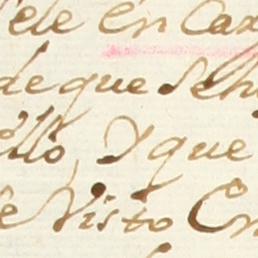 ele en Cax
de que se h
ello, Y que
e Visto En